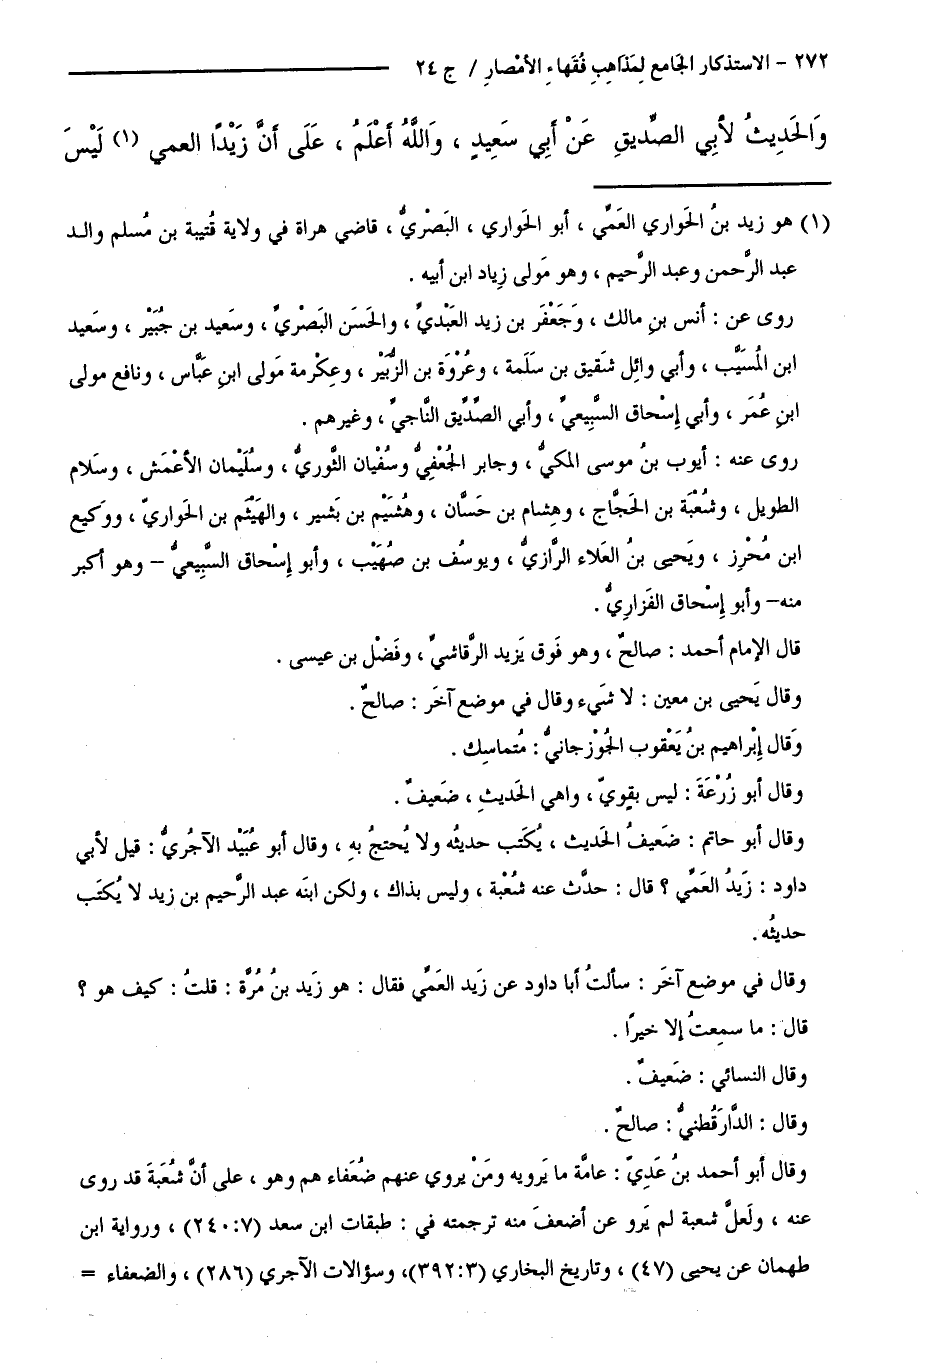 ٢٧٢ - الاستذكار الجَامع لِمَذاهِبِ فُقَهاءِ الأمْصارِ / ج ٢٤
وَالحَديثُ لأبِي الصِّديقِ عَنْ أبِي سَعِيدٍ ، وَاللَّهُ أعْلَمُ ، عَلَى أنَّ زَيْدًا العمي (١) لَيْسَ
(١) هو زيد بنُ الحَواري العَمِّي ، أبو الحَواري ، البَصْريُّ ، قاضي هراة في ولاية قُتيبة بن مُسلم والـد
عبد الرَّحمن وعبد الرَّحيم ، وهو مَولى زِياد ابن أبيه .
روى عن : أنس بنِ مالك ، وَجَعْفَر بن زيد العَبْديِّ ، والحَسَن البَصْريِّ ، وسَعيد بن جُبَيْر ، وسَعيد
ابن المُسَيَّب ، وأبي وائِل شَقيق بن سَلَمة ، وعُرْوَة بن الزُّبَيْر ، وعِكْرمة مَولى ابنِ عَبَّاس ، ونافع مولى
ابنِ عُمَر ، وأبي إسْحاق السَّبِيعيِّ ، وأبي الصِّدِّيق النَّاجيِّ ، وغيرهم .
روى عنه : أيوب بنُ موسى المكيُّ ، وجابر الجُعْفِيُّ وسُفْيان الثَّوريُّ ، وسُلَيْمان الأعْمَش ، وسَلام
الطويل ، وشُعْبَة بن الحَجَّاج ، وهِشام بن حَسَّان ، وهُشَيْم بن بَشير ، والهَيْثَم بن الحَواريّ ، ووكيع
ابن مُحْرِز ، ويَحيى بنُ العَلاء الرَّازيُّ ، ويوسُف بن صُهَيْب ، وأبو إسْحاق السَّبِيعيُّ – وهو أكبر
منه– وأبو إسْحاق الفَزارِيُّ .
قال الإمام أحمد : صالحٌ ، وهو فَوق يَزيد الرَّقاشيِّ ، وفَضْل بن عيسى .
وقال يَحيى بن معين : لا شَيء وقال في موضع آخَر : صالحٌ .
وَقال إبْراهيم بنُ يَعْقوب الجُوْزجانيُّ : مُتماسِك .
وقال أبو زُرْعَةَ : ليس بقويّ ، واهي الحَديثِ ، ضَعيفٌ .
وقال أبو حاتم : ضَعيفُ الحَديث ، يُكتَب حديثُه ولا يُحتجُ بهِ ، وقال أبو عُبَيْد الآجُريُّ : قيل لأبي
داود : زَيدُ العَمِّي ؟ قال : حدَّث عنه شُعْبة ، وليس بذاك ، ولكن ابنَه عبد الرَّحيم بن زيد لا يُكتَب
حديثُه .
وقال في موضع آخَر : سألتُ أبا داود عن زَيد العَمِّي فقال : هو زَيد بنُ مُرَّة : قلتُ : كيف هو ؟
قال : ما سمِعتُ إلا خيرًا .
وقال النسائي : ضَعيفٌ .
وقال : الدَّارَقُطنيُّ : صالحٌ .
وقال أبو أحمد بنُ عَدِيّ : عامَّة ما يَرويه ومَنْ يروي عنهم ضُعَفاء هم وهو ، على أنَّ شُعبَةَ قد روى
عنه ، ولَعلَّ شعبة لم يَرو عن أضعفَ منه ترجمته في : طبقات ابن سعد (٢٤٠:٧) ، ورواية ابن
طهمان عن يحيى (٤٧) ، وتاريخ البخاري (٣٩٢:٣)، وسؤالات الآجري (٢٨٦) ، والضعفاء =